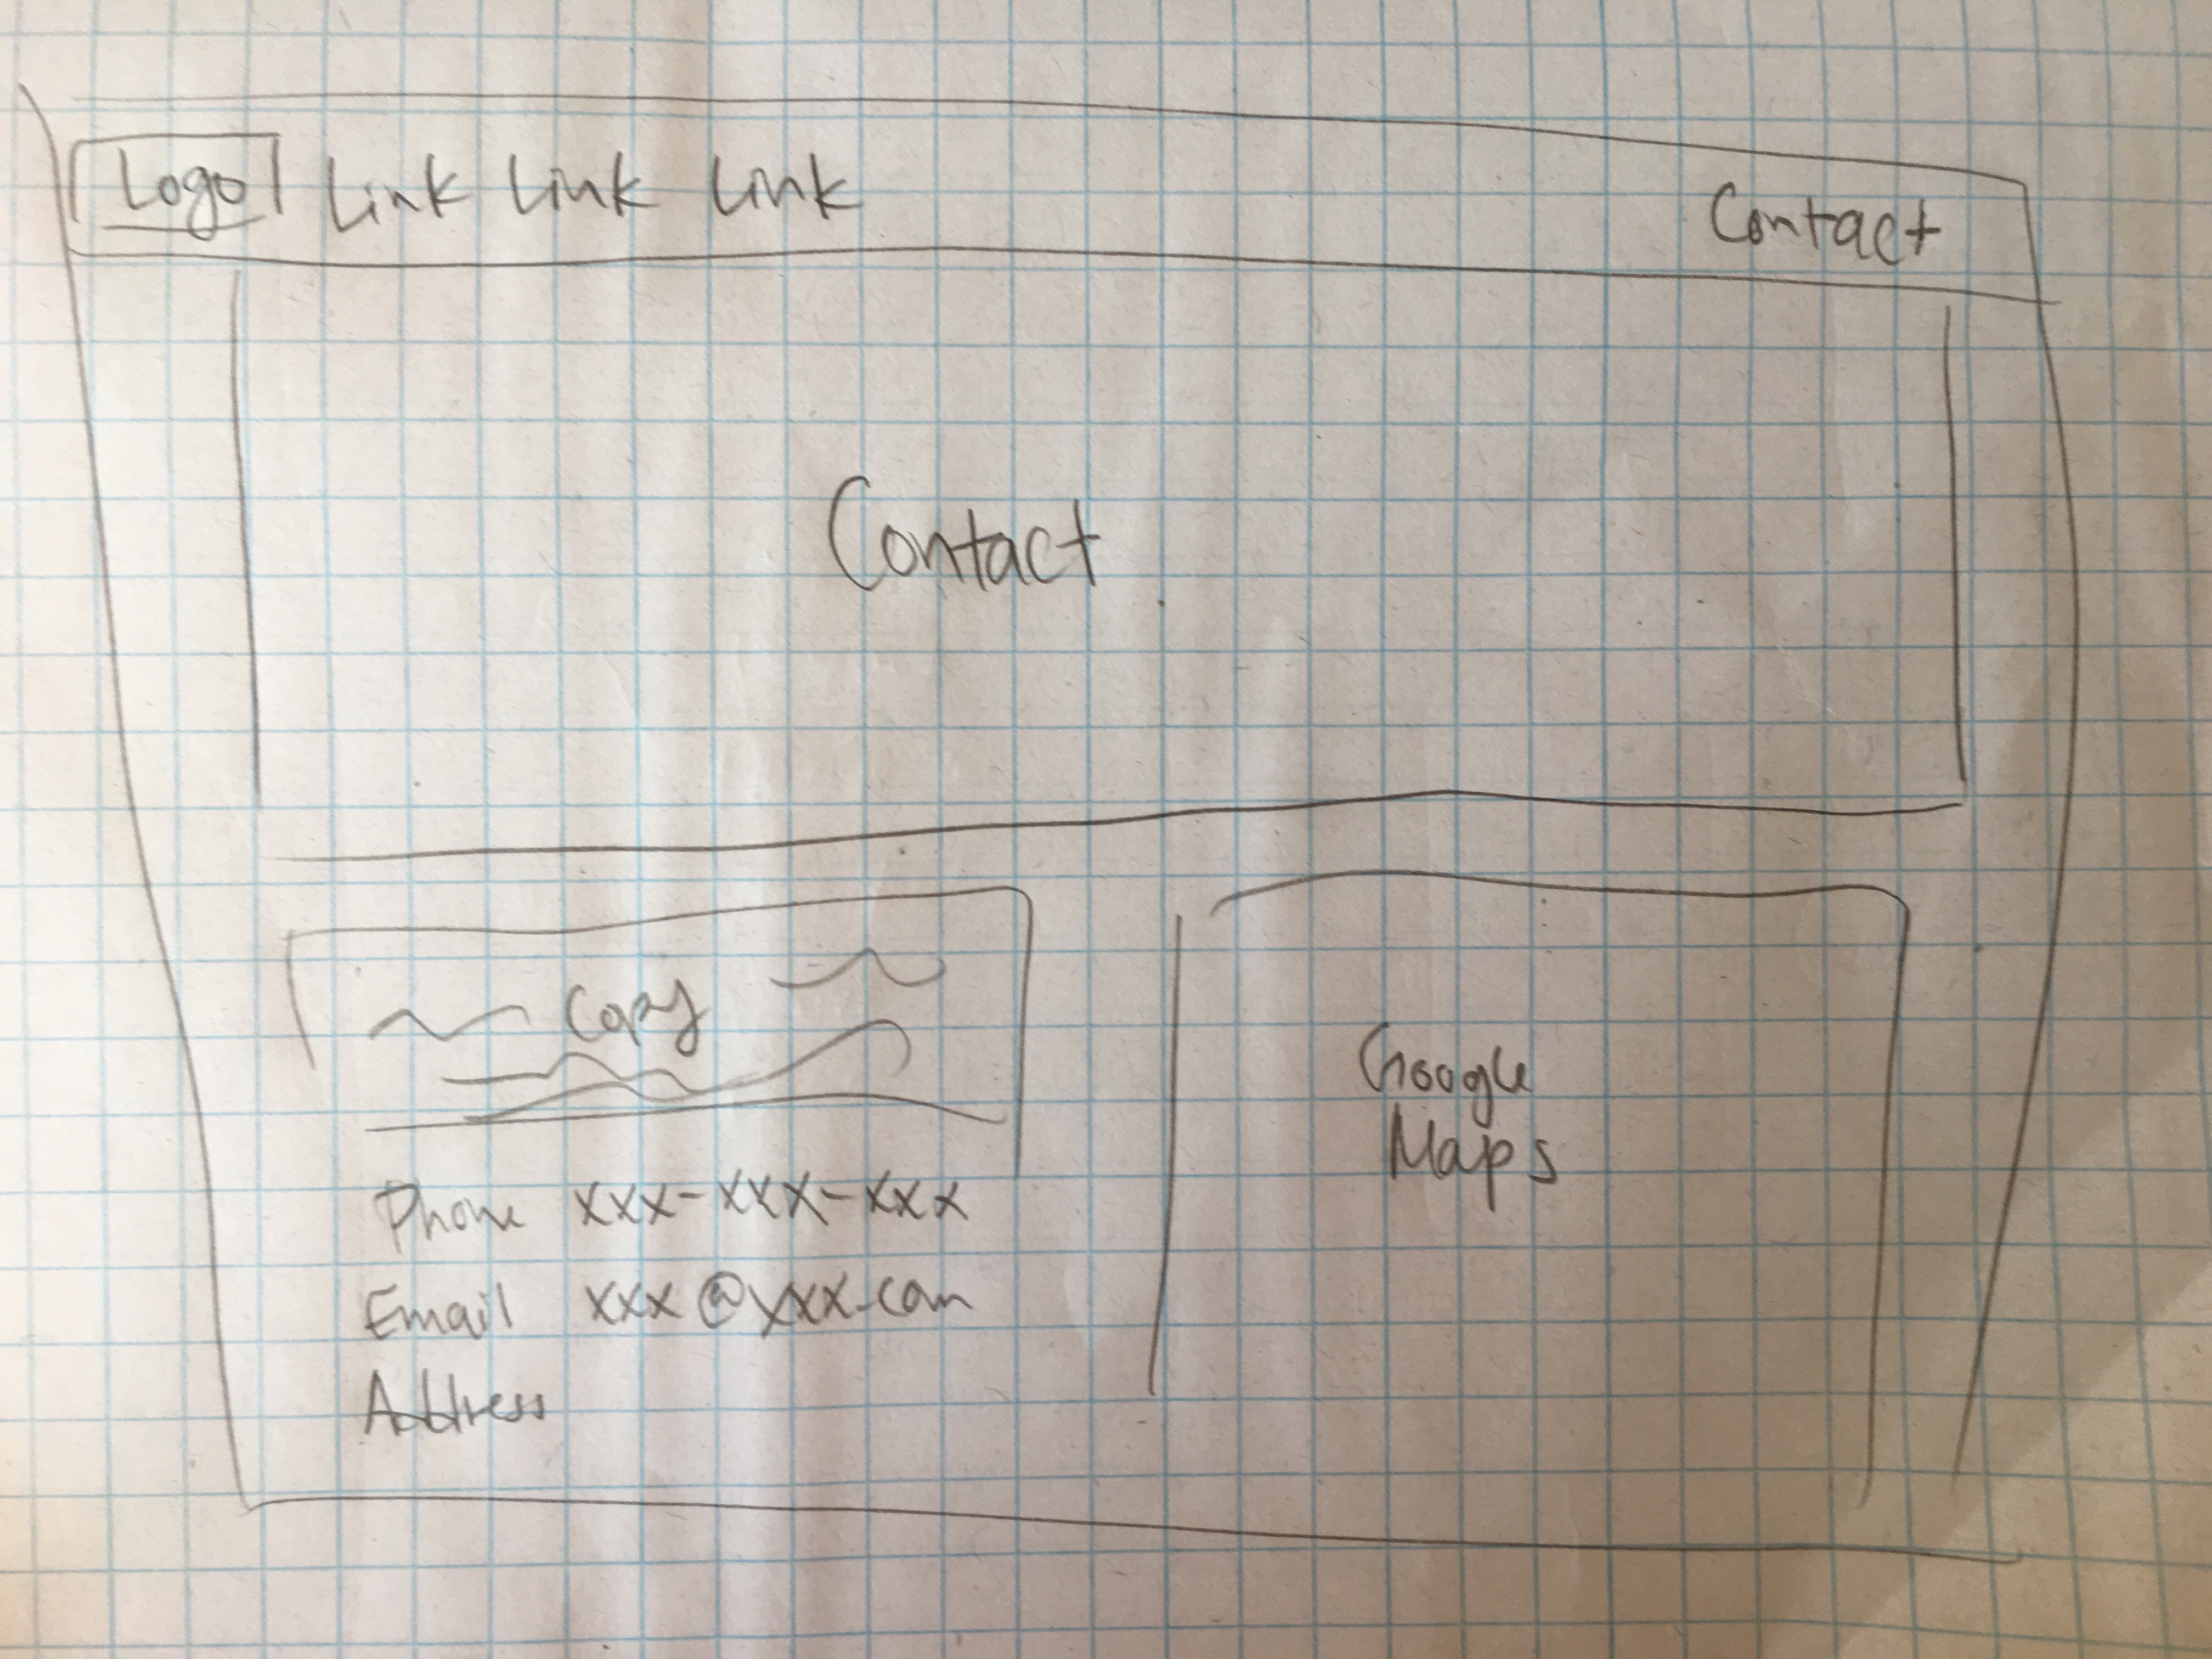 Logo Link Link Link Contact
Contact
Copy
Phone xxx-xxx-xxx
Email xxx@xxx.com
Address
Google
Maps